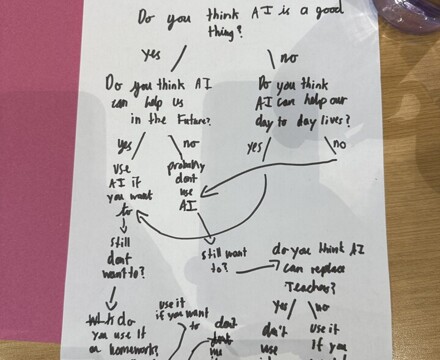 Do you think AI is a good
thing?
yes
no
Do you think AI
can help us
in the Future?
Do you think
AI can help our
day to day lives?
yes
no
yes
no
use
AI if
you want
to
probably
dont
use
AI
still
dont
want to?
still want
to?
do you think AI
can replace
Teachers?
yes
no
do
you use it
on homework?
use it
if you want
to
don't
don't
use
use it
If you